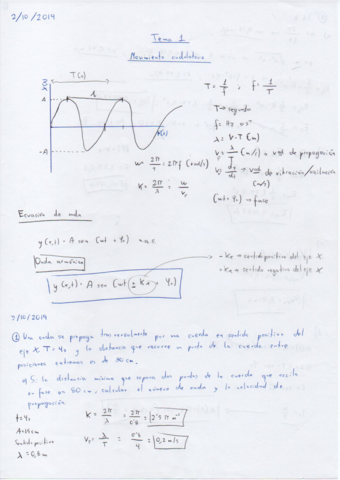 2/10/2014
Tema 1
Movimiento ondulatorio
T(s)
A
-A
T = 1/f ; f = 1/T
T → segundo
f = Hz = s⁻¹
λ = v · T (m)
w = 2π/T = 2πf (rad/s)
K = 2π/λ
(m/s)
(wt + φ₀) → fase
Ecuación de onda
y(x,t) = A sen (wt + φ₀)
Onda armónica
y(x,t) = A sen (wt ± Kx + φ₀)
-Kx → sentido positivo del eje X
+Kx → sentido negativo del eje X
3/10/2014
① Una onda se propaga transversalmente por una cuerda en sentido positivo del
eje X. T = 4s y la distancia que recorre un punto de la cuerda entre
posiciones extremas es de
a) Si la distancia mínima que separa dos puntos de la cuerda que oscila
en fase son 80 cm, calcular el número de onda y la velocidad de
propagación
t = 4s
Sentido positivo
λ = 0,8 m
K = 2π/λ = 2π/0'8 = 2'5 π m⁻¹
= λ/T = 0'8/4 = 0,2 m/s